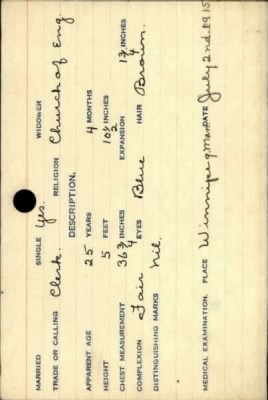 MARRIED SINGLE Yes. WIDOWER
TRADE OR CALLING Clerk. RELIGION Church of Eng.
DESCRIPTION.
APPARENT AGE 25 YEARS 4 MONTHS
HEIGHT 5 FEET 10½ INCHES
CHEST MEASUREMENT 36¾ INCHES EXPANSION 1¾ INCHES
COMPLEXION Fair EYES Blue HAIR Brown.
DISTINGUISHING MARKS Nil.
MEDICAL EXAMINATION. PLACE Winnipeg Man DATE July 2nd 1915